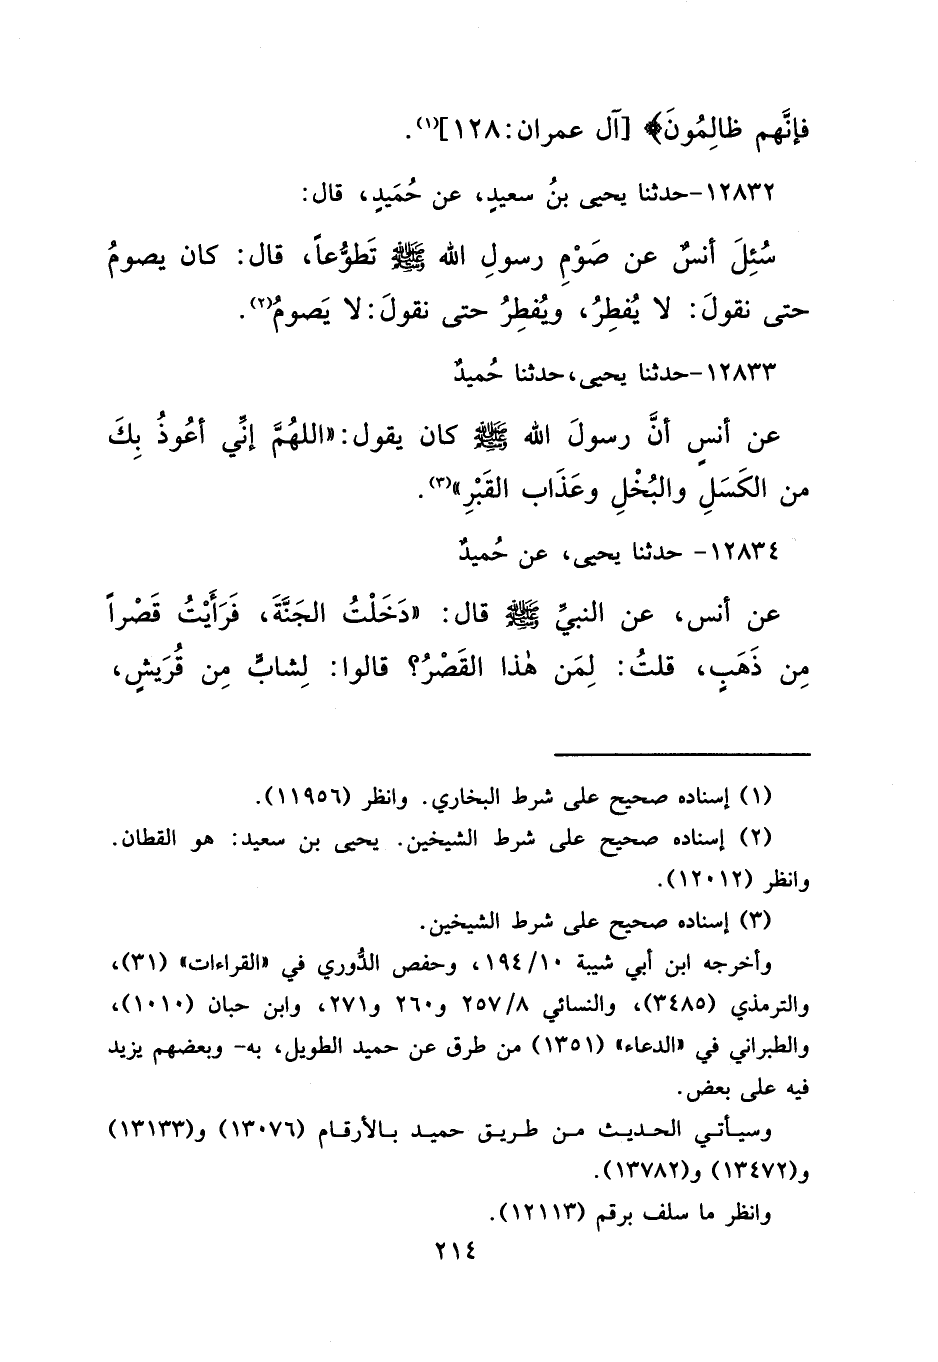 فإنَّهم ظالِمُونَ﴾ [آل عمران: ١٢٨](١).
١٢٨٣٢-حدثنا يحيى بنُ سعيدٍ، عن حُمَيدٍ، قال:
سُئِلَ أنسٌ عن صَوْمِ رسولِ الله ﷺ تَطوُّعاً، قال: كان يصومُ
حتى نقولَ: لا يُفطِرُ، ويُفطِرُ حتى نقولَ: لا يَصومُ(٢).
١٢٨٣٣-حدثنا يحيى، حدثنا حُميدٌ
عن أنسٍ أنَّ رسولَ الله ﷺ كان يقول: «اللهُمَّ إنِّي أعُوذُ بِكَ
من الكَسَلِ والبُخْلِ وعَذَاب القَبْرِ»(٣).
١٢٨٣٤- حدثنا يحيى، عن حُميدٌ
عن أنس، عن النبيِّ ﷺ قال: «دَخَلْتُ الجَنَّةَ، فَرَأَيْتُ قَصْراً
مِن ذَهَبٍ، قلتُ: لِمَن هٰذا القَصْرُ؟ قالوا: لِشابٍّ مِن قُرَيشٍ،
(١) إسناده صحيح على شرط البخاري. وانظر (١١٩٥٦).
(٢) إسناده صحيح على شرط الشيخين. يحيى بن سعيد: هو القطان.
وانظر (١٢٠١٢).
(٣) إسناده صحيح على شرط الشيخين.
وأخرجه ابن أبي شيبة ١٩٤/١٠، وحفص الدُّوري في «القراءات» (٣١)،
والترمذي (٣٤٨٥)، والنسائي ٢٥٧/٨ و٢٦٠ و٢٧١، وابن حبان (١٠١٠)،
والطبراني في «الدعاء» (١٣٥١) من طرق عن حميد الطويل، به- وبعضهم يزيد
فيه على بعض.
وسيأتي الحديث من طريق حميد بالأرقام (١٣٠٧٦) و(١٣١٣٣)
و(١٣٤٧٢) و(١٣٧٨٢).
وانظر ما سلف برقم (١٢١١٣).
٢١٤